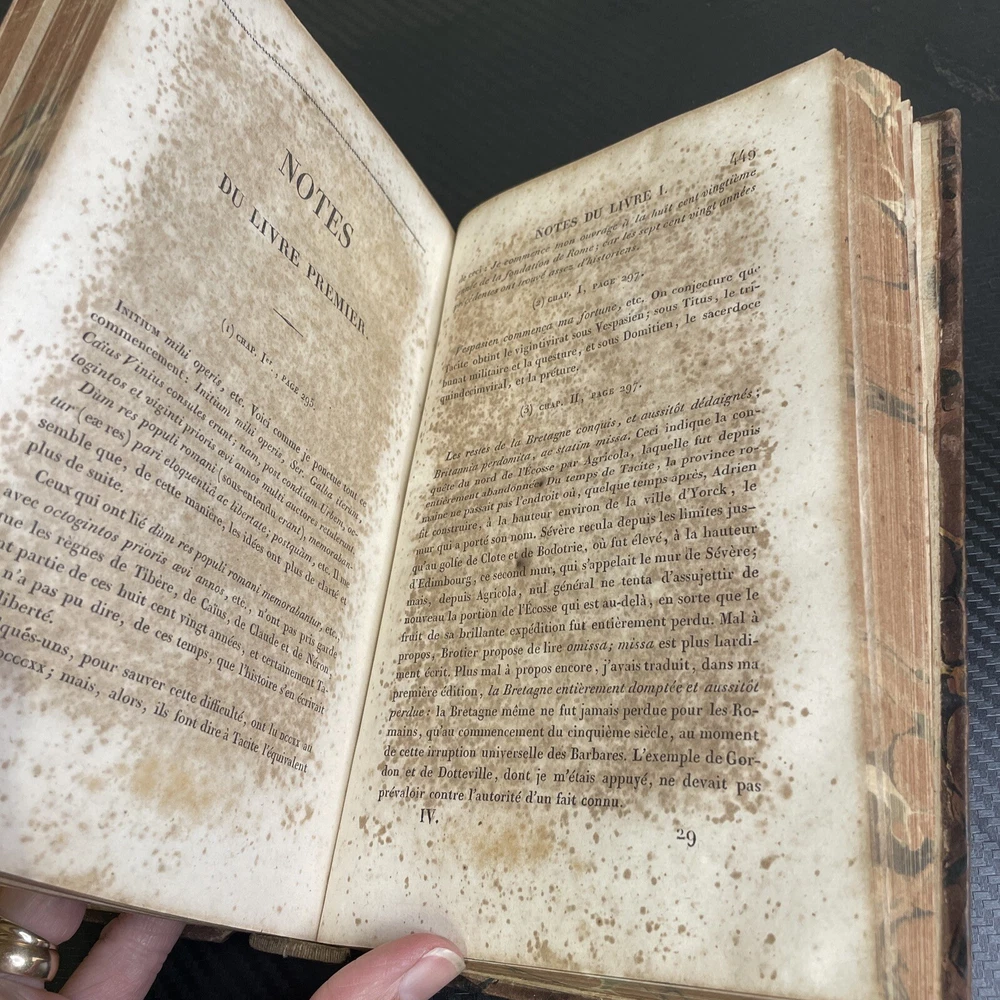 NOTES
DU LIVRE PREMIER
(1) CHAP. Ier, PAGE 295.
INITIUM mihi operis, etc. Voici comme je ponctue tout ce
commencement: Initium mihi operis, Ser. Galba iterum,
Caïus Vinius consules erunt; nam, post conditam Urbem, oc-
togintos et viginti prioris ævi annos multi auctores retulerunt.
Dum res populi romani (sous-entendu erant), memoraban-
tur (eæ res) pari eloquentiâ ac libertate; postquàm, etc. Il me
semble que, de cette manière, les idées ont plus de clarté et
plus de suite.
Ceux qui ont lié dùm res populi romani memorabantur, etc.,
avec octogintos prioris ævi annos, etc., n'ont pas pris garde
que les règnes de Tibère, de Caïus, de Claude et de Néron,
nt partie de ces huit cent vingt années, et certainement Ta-
n'a pas pu dire, de ces temps, que l'histoire s'en écrivait
liberté.
quès-uns, pour sauver cette difficulté, ont lu DCCXX au
DCCCXX; mais, alors, ils font dire à Tacite l'équivalent
449
NOTES DU LIVRE I.
de ceci: Je commence mon ouvrage à la huit cent vingtième
année de la fondation de Rome; car les sept cent vingt années
précédentes ont trouvé assez d'historiens.
(2) CHAP. I, PAGE 297.
Vespasien commença ma fortune, etc. On conjecture que
Tacite obtint le vigintivirat sous Vespasien; sous Titus, le tri-
bunat militaire et la questure, et sous Domitien, le sacerdoce
quindecimviral, et la préture.
(3) CHAP. II, PAGE 297.
Les restes de la Bretagne conquis, et aussitôt dédaignés;
Britannia perdomita, ac statim missa. Ceci indique la con-
quête du nord de l'Écosse par Agricola, laquelle fut depuis
entièrement abandonnée. Du temps de Tacite, la province ro-
maine ne passait pas l'endroit où, quelque temps après, Adrien
fit construire, à la hauteur environ de la ville d'Yorck, le
mur qui a porté son nom. Sévère recula depuis les limites jus-
qu'au golfe de Clote et de Bodotrie, où fut élevé, à la hauteur
d'Edimbourg, ce second mur, qui s'appelait le mur de Sévère;
mais, depuis Agricola, nul général ne tenta d'assujettir de
nouveau la portion de l'Écosse qui est au-delà, en sorte que le
fruit de sa brillante expédition fut entièrement perdu. Mal à
propos, Brotier propose de lire omissa; missa est plus hardi-
ment écrit. Plus mal à propos encore, j'avais traduit, dans ma
première édition, la Bretagne entièrement domptée et aussitôt
perdue: la Bretagne même ne fut jamais perdue pour les Ro-
mains, qu'au commencement du cinquième siècle, au moment
de cette irruption universelle des Barbares. L'exemple de Gor-
don et de Dotteville, dont je m'étais appuyé, ne devait pas
prévaloir contre l'autorité d'un fait connu.
IV.
29